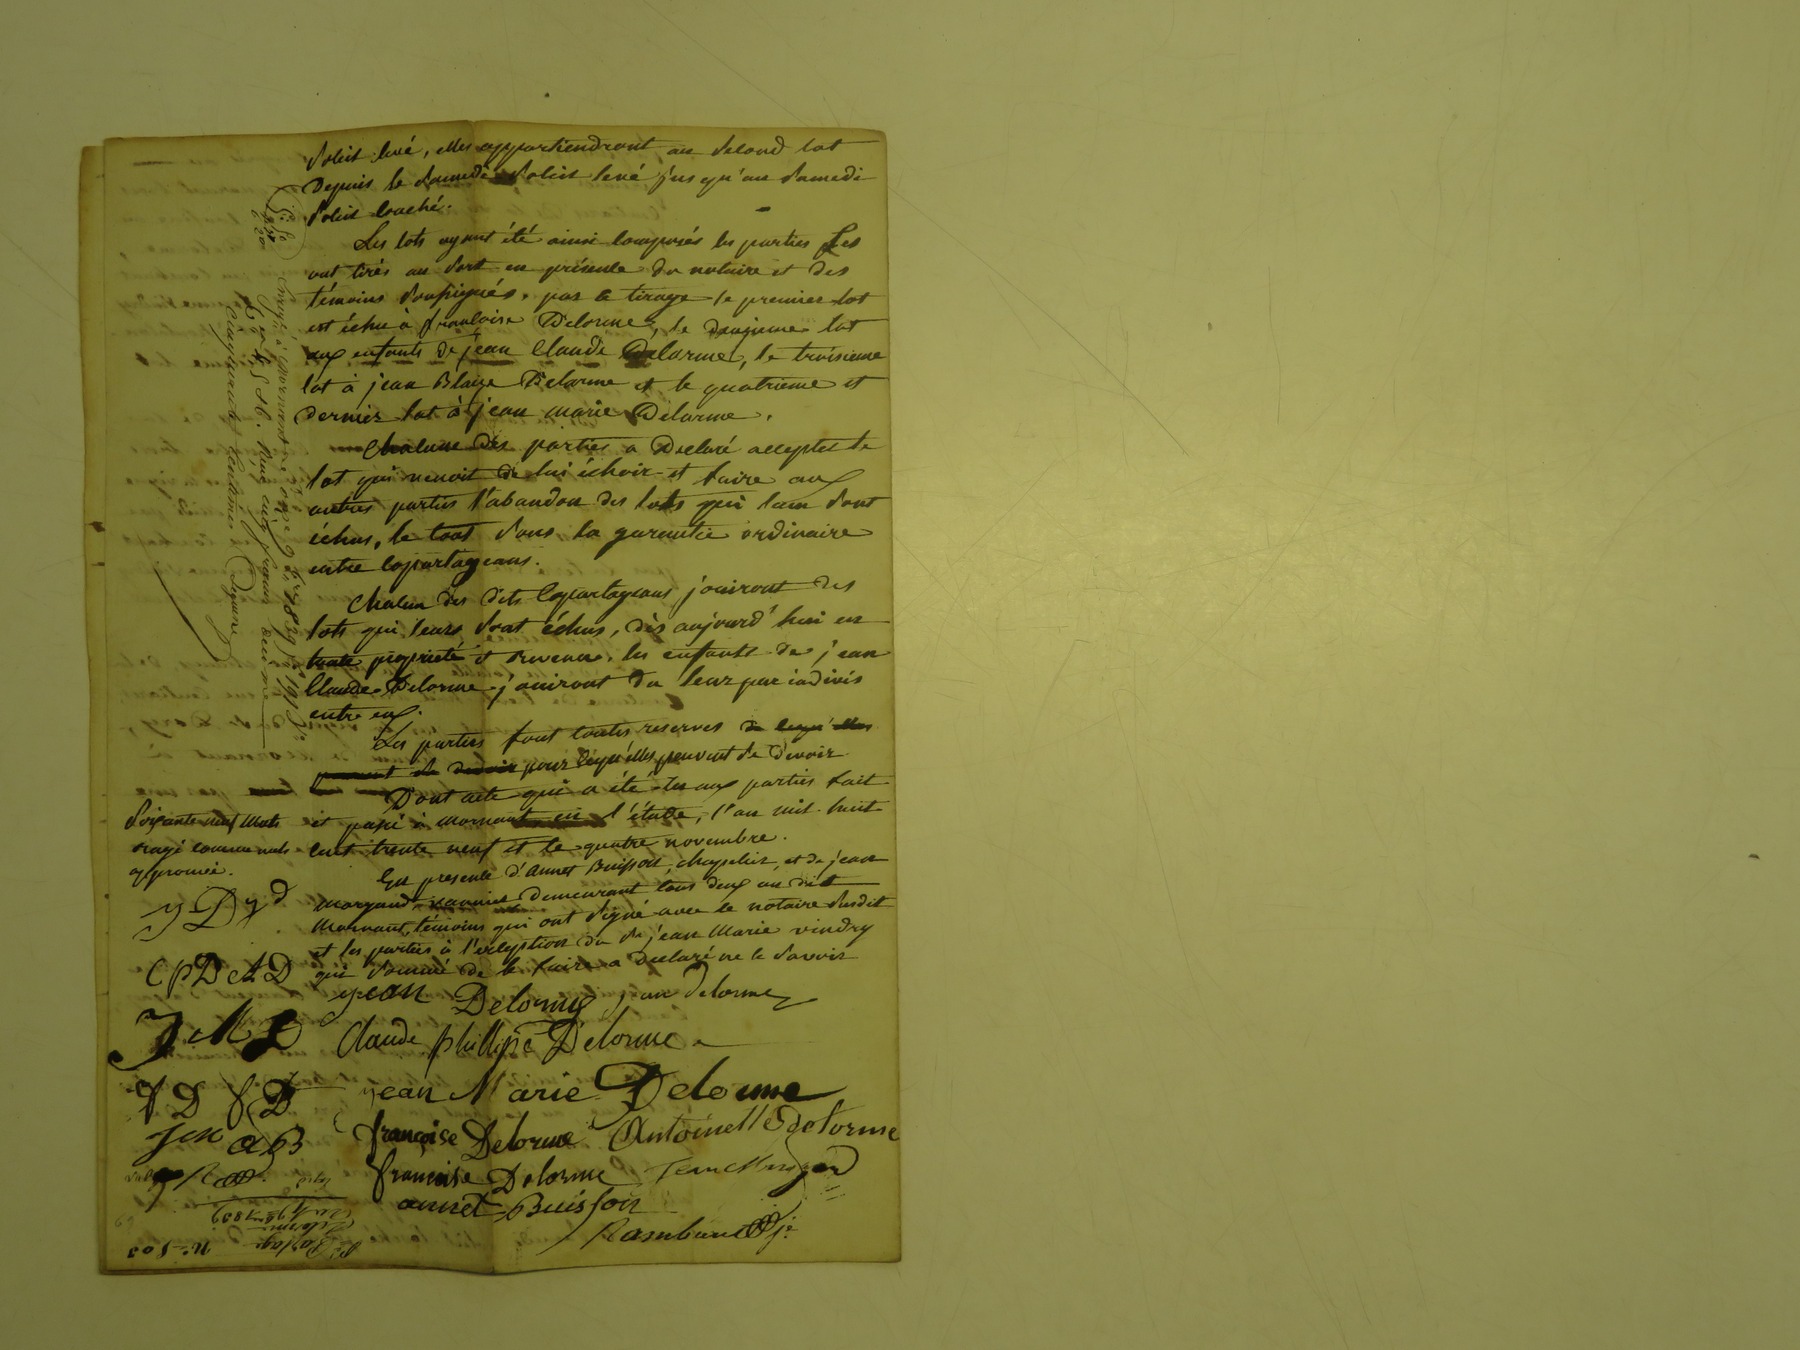 soleil levé, elles appartiendront au second lot
Depuis le samedi soleil levé jusqu'au samedi
soleil couché.
Les lots ayant été ainsi composés les parties Les
ont tirés au sort en présence du notaire et des
témoins soussignés. par le tirage le premier lot
est échu à françoise Delorme, le deuxieme lot
aux enfants de jean Claude Delorme, le troisieme
lot à jean Blaize Delorme et le quatrieme et
dernier lot à jean marie Delorme.
Chacune des parties a Declaré accepter le
lot qui venoit de lui échoir et faire aux
autres parties l'abandon des lots qui leur sont
échus, le tout sous la garantie ordinaire
entre copartageans.
Chacun des dits Copartageans jouiront des
lots qui leurs sont échus, dès aujourd'hui en
toute propriété et revenu. les enfants de jean
Claude Delorme jouiront du leur par indivis
entre eux.
Les parties font toutes reserves
pour cequ'elles peuvent se devoir
Dont acte qui a été lu aux parties fait
et passé à mornant en l'étude, l'an mil huit
cent trente neuf et le quatre novembre.
En presence d'annet Buisson, chapelier, et de jean
demeurant tous deux au dit
Mornant, témoins qui ont signé avec le notaire susdit
et les parties à l'exception du sr jean Marie vindry
qui sommé de le faire a declaré ne le savoir
soixante neuf mots
rayé comme nuls
approuvé.
jean Delorme jean delorme
C P D A D
J M D Claude phillipe Delorme
jean Marie Delorme
françoise Delorme Antoinette delorme
françoise Delorme
annet Buisson
N° 503